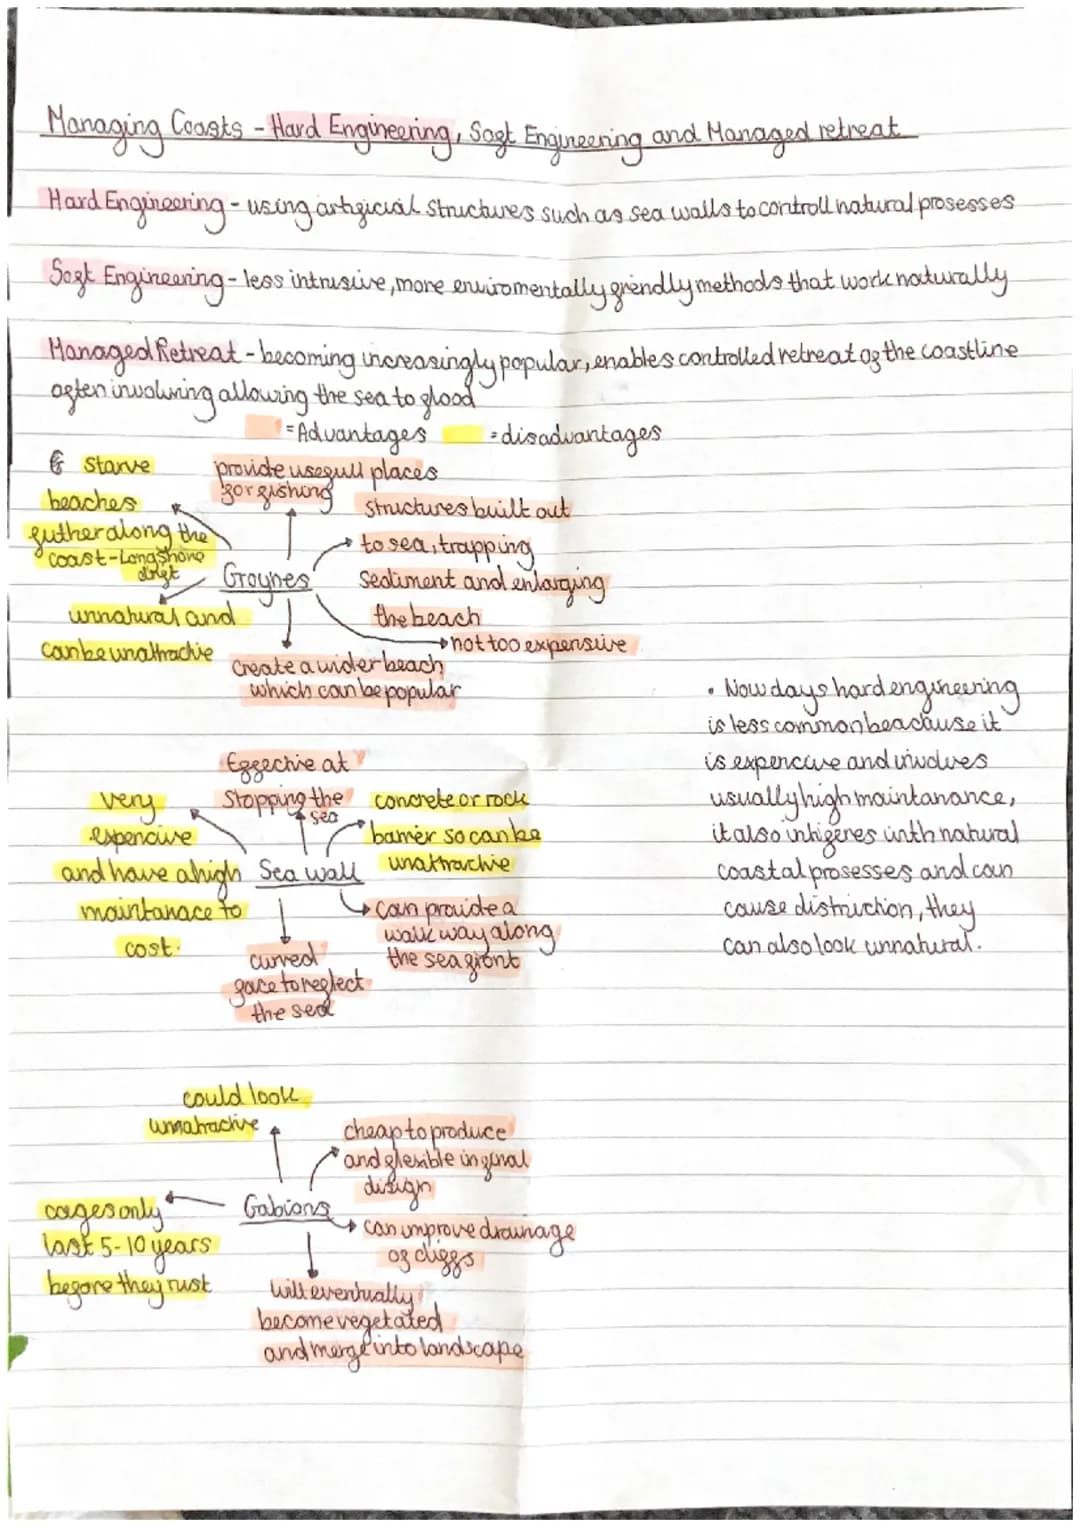 Managing Coasts - Hard Engineering, Soft Engineering and Managed retreat
Hard Engineering - using artificial structures such as sea walls to controll natural prosesses
Soft Engineering - less intrusive, more enviromentally friendly methods that work naturally
Managed Retreat - becoming increasingly popular, enables controlled retreat of the coastline
often involving allowing the sea to flood
= Advantages = disadvantages
starve
beaches
futher along the
coast - Longshore
drift
provide usefull places
for fishing
structures built out
to sea, trapping
sediment and enlarging
the beach
Groynes
unnatural and
can be unattractive
not too expensive
create a wider beach
which can be popular
• Now days hard engineering
is less common beacause it
is expencive and involves
usually high maintanance,
it also infigeres with natural
coastal prosesses and can
cause distruction, they
can also look unnatural.
Effective at
stopping the
sea
very
expencive
and have a high
maintanace to
cost.
concrete or rock
barrier so can be
unattractive
Sea wall
can provide a
walk way along
the sea front
curved
face to reflect
the sea
could look
unnatractive
cheap to produce
and flexible in final
disign
Gabions
cages only
last 5-10 years
before they rust
can improve drainage
of cliffs
will eventually
become vegetated
and merge into landscape